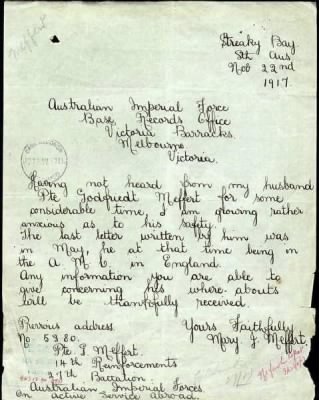 Meffert
Streaky Bay
Sth Aus
Nov 22nd
1917.
Australian Imperial Force
Base Records Office
Victoria Barracks.
Melbourne
Victoria.
Having not heard from my husband
Pte Godfriedt Meffert for some
considerable time, I am growing rather
anxious as to his safety.
The last letter written by him was
in May, he at that time being in
the A. M. C. in England.
Any information you are able to
give concerning his where-abouts
will be thankfully received
Yours Faithfully
Mary J. Meffert.
Previous address
No. 5380.
Pte G Meffert.
14th Reinforcements
27th Battalion.
Australian Imperial Forces.
On Active Service Abroad.